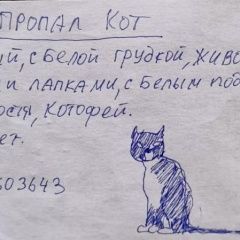 ПРОПАЛ КОТ
ий, с белой грудкой, живо
и лапками, с белым под
ося, Котофей.
ет.
603643